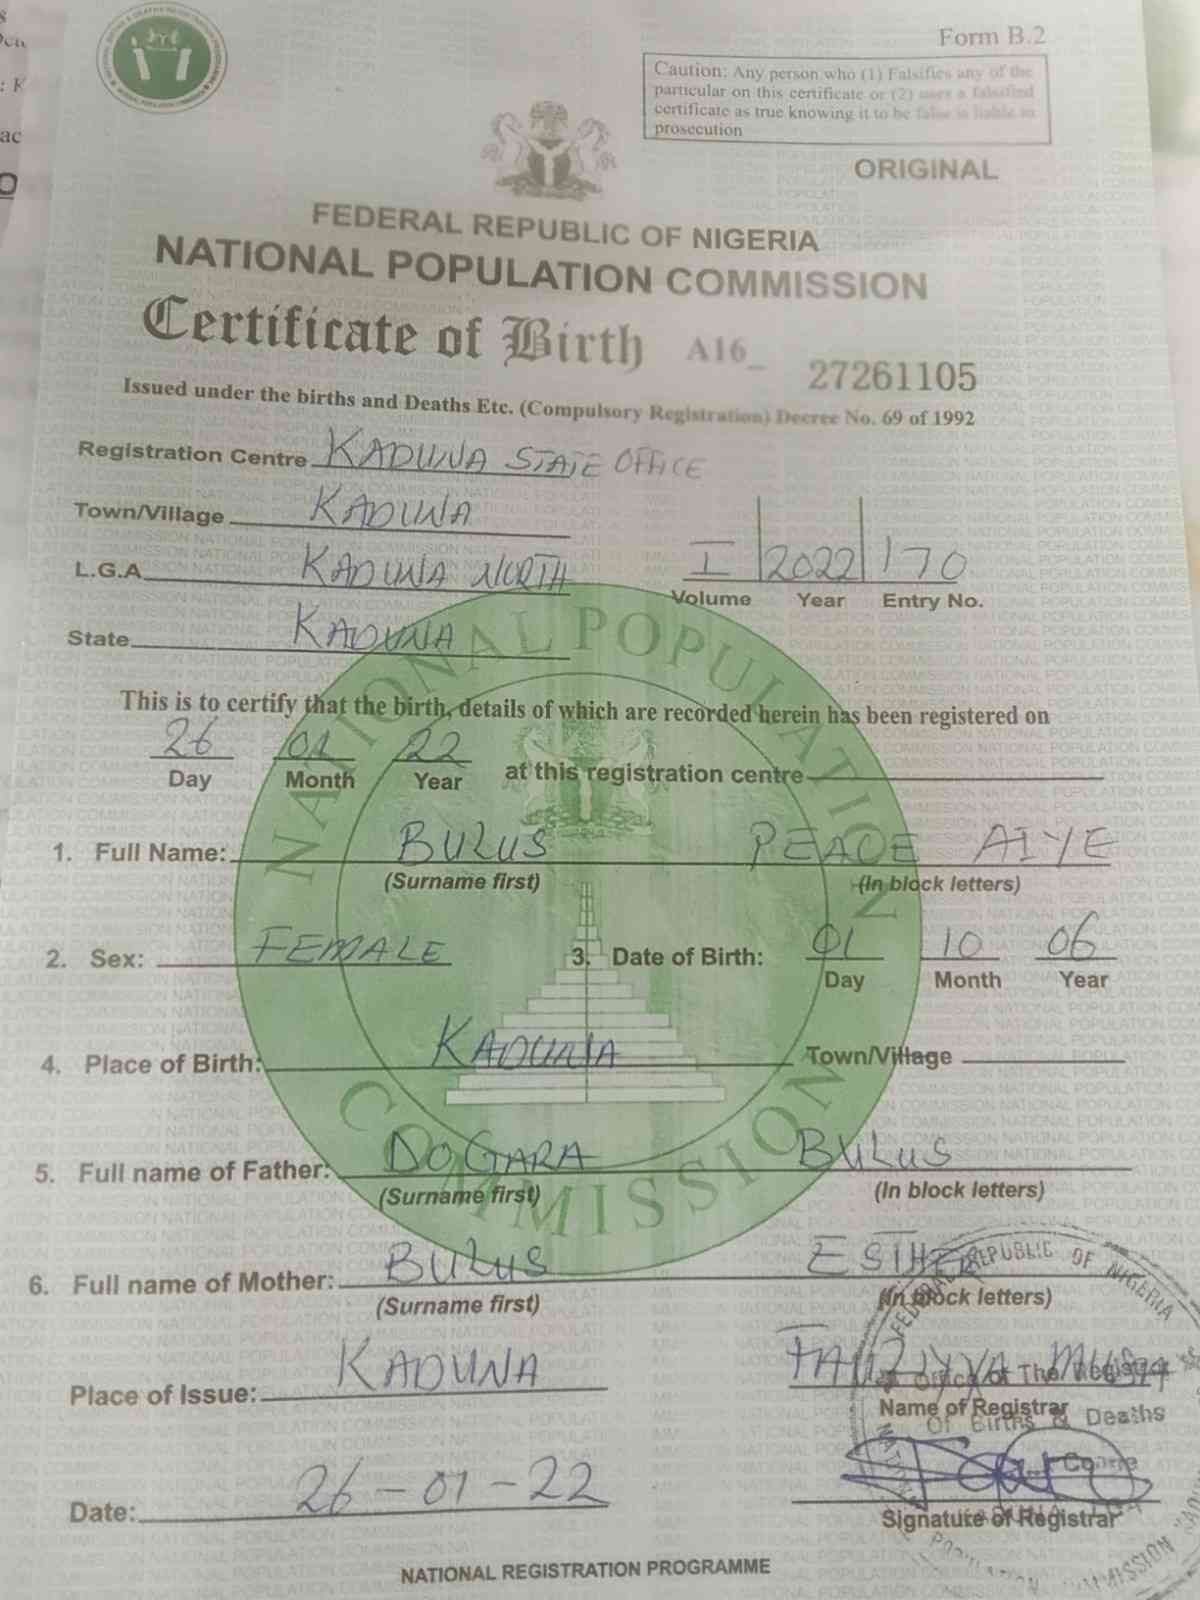 Form B.2
Caution: Any person who (1) Falsifies any of the
particular on this certificate or (2) uses a falsified
certificate as true knowing it to be false is liable to
prosecution
ORIGINAL
FEDERAL REPUBLIC OF NIGERIA
NATIONAL POPULATION COMMISSION
Certificate of Birth A16_ 27261105
Issued under the births and Deaths Etc. (Compulsory Registration) Decree No. 69 of 1992
Registration Centre KADUNA STATE OFFICE
Town/Village KADUNA
L.G.A KADUNA NORTH
I 2022 170
Volume Year Entry No.
State KADUNA
This is to certify that the birth, details of which are recorded herein has been registered on
26 01 22
Day Month Year at this registration centre
1. Full Name: BULUS PEACE AIYE
(Surname first) (In block letters)
2. Sex: FEMALE 3. Date of Birth: 01 10 06
Day Month Year
4. Place of Birth: KADUNA Town/Village
5. Full name of Father: DOGARA BULUS
(Surname first) (In block letters)
6. Full name of Mother: BULUS ESTHER
(Surname first) (In block letters)
Place of Issue: KADUNA
Name of Registrar
Date: 26-01-22
Signature of Registrar
NATIONAL REGISTRATION PROGRAMME
NATIONAL POPULATION COMMISSION
FEDERAL REPUBLIC OF NIGERIA
Office of The Registrar
Of Births & Deaths